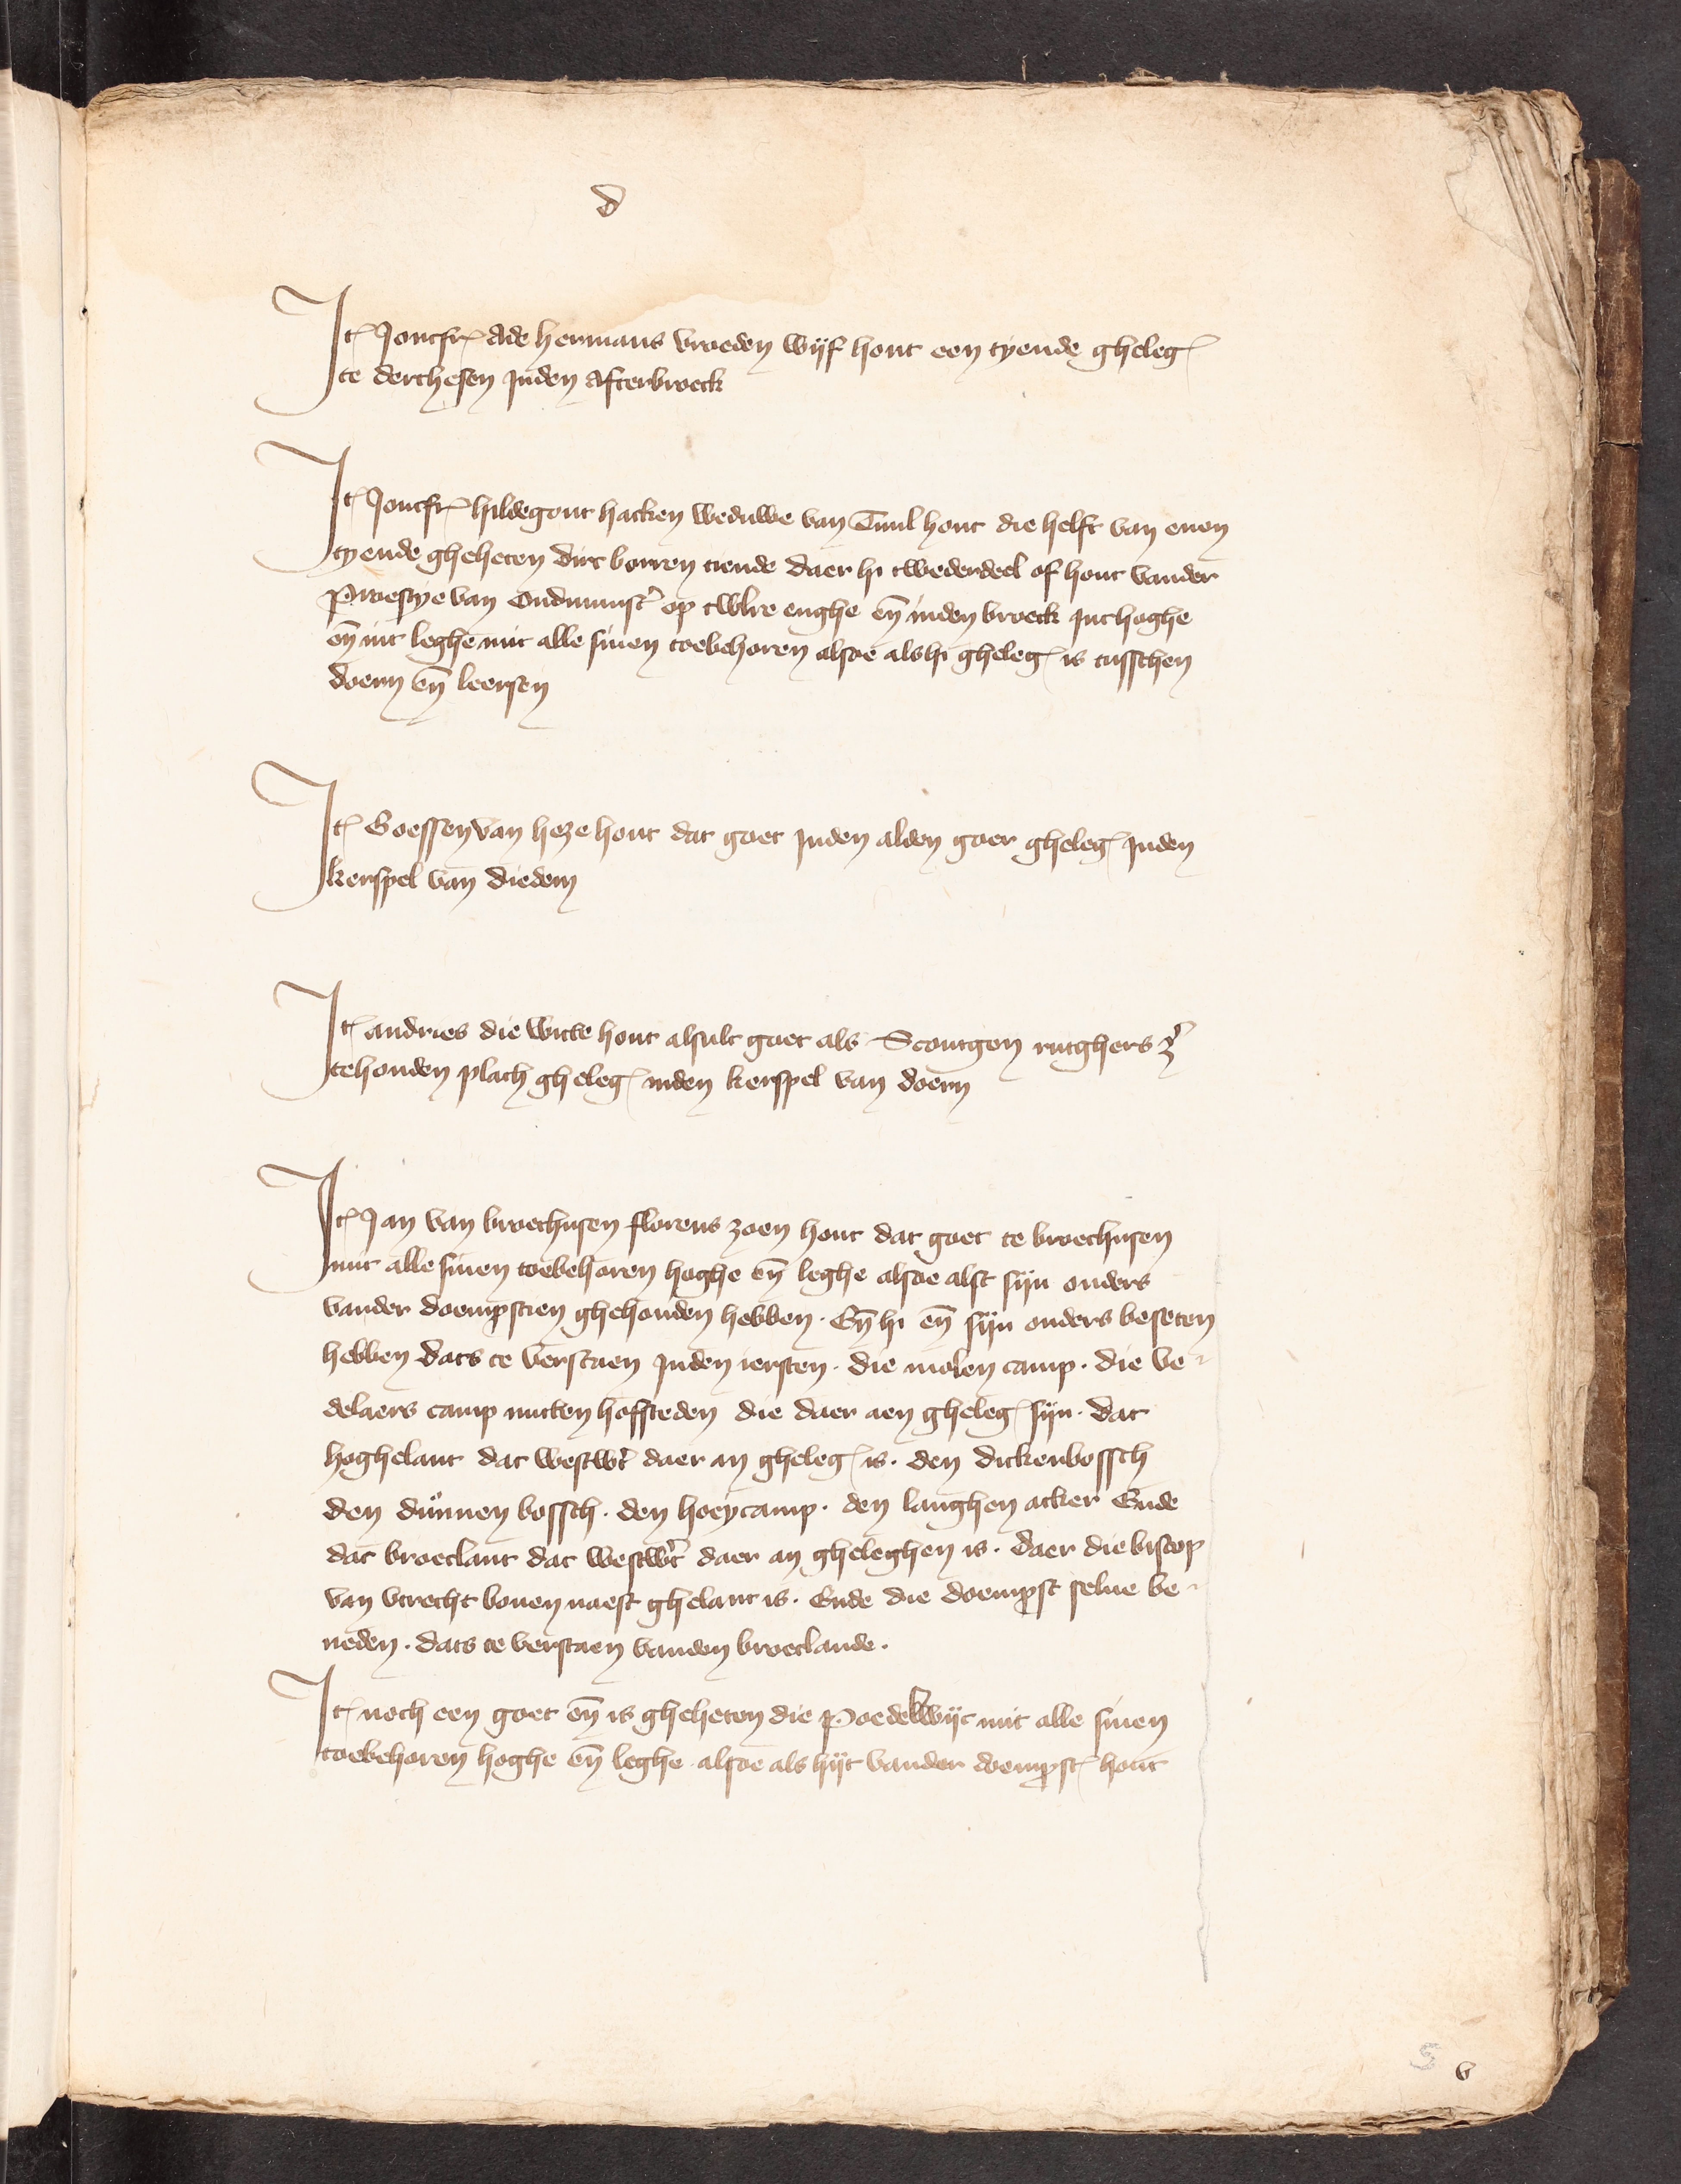 d
It Joncfr Ade hermans vroeden wijf hout een tyende gheleg
te derthesen Inden Afterbroeck
It Joncfr hildegont hacken weduwe van Tuul hout die helft van enen
tyende gheheten dirc borren tiende daer hi twederdeel of hout vander
Proestye van Oudmunst' op twlre enghe en̄ inden broeck Int hoghe
en̄ int leghe mit alle sinen toebehoren alsoe als hi gheleg is tusschen
doern en̄ leersen
It Goessen van heze hout dat goet Inden alden goer gheleg Inden
kerspel van diedem
It andries die witte hout alsulc goet als Scoutgen rutghers z'
te houden plach gheleg inden kerspel van doern
It Jan van broechusen florens zoen hout dat goet te broechusen
mit alle sinen toebehoren hoghe en̄ leghe alsoe alst sijn ouders
vander doempstien ghehouden hebben. En̄ hi en̄ sijn ouders beseten
hebben dats te verstaen Inden iersten. die molen camp. die ve-
delaers camp mitten hoffsteden die daer aen gheleg sijn. dat
hoghelant dat westwt' daer an gheleg is. den dickenbossch
den dunnen bossch. den hoeycamp. den langhen acker Ende
dat broeclant dat westwt' daer an gheleghen is. daer die biscop
van vtrecht bouen naest ghelant is. Ende die doempst selue be-
neden. dats te verstaen vanden broeclande.
It noch een goet en̄ is gheheten die Poedelwijc mit alle sinen
toebehoren hoghe en̄ leghe alsoe als hijt vander doempst hout
5 v